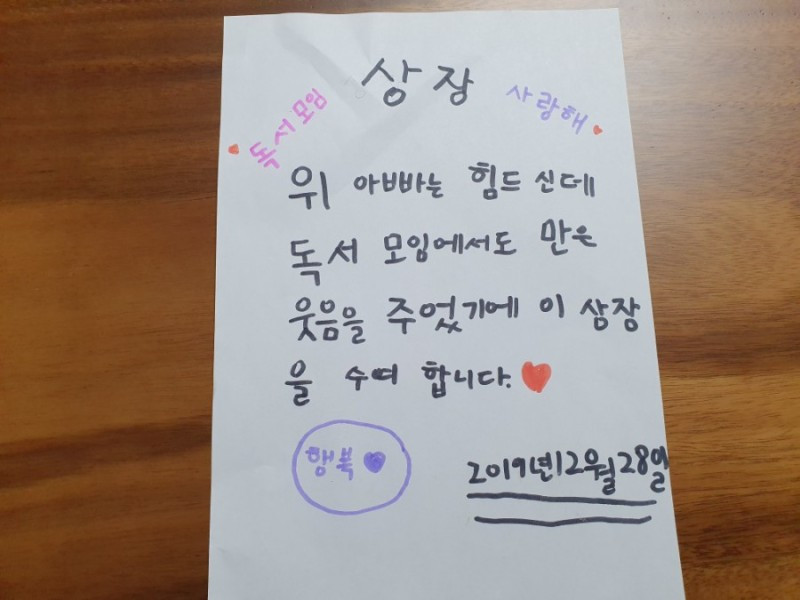 상장
독서모임
사랑해
위 아빠는 힘드신데
독서 모임에서도 만은
웃음을 주었기에 이 상장
을 수여 합니다.
행복
2019년12월28일